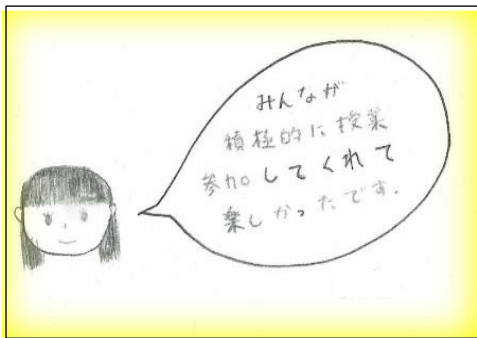 みんなが
積極的に授業
参加してくれて
楽しかったです.